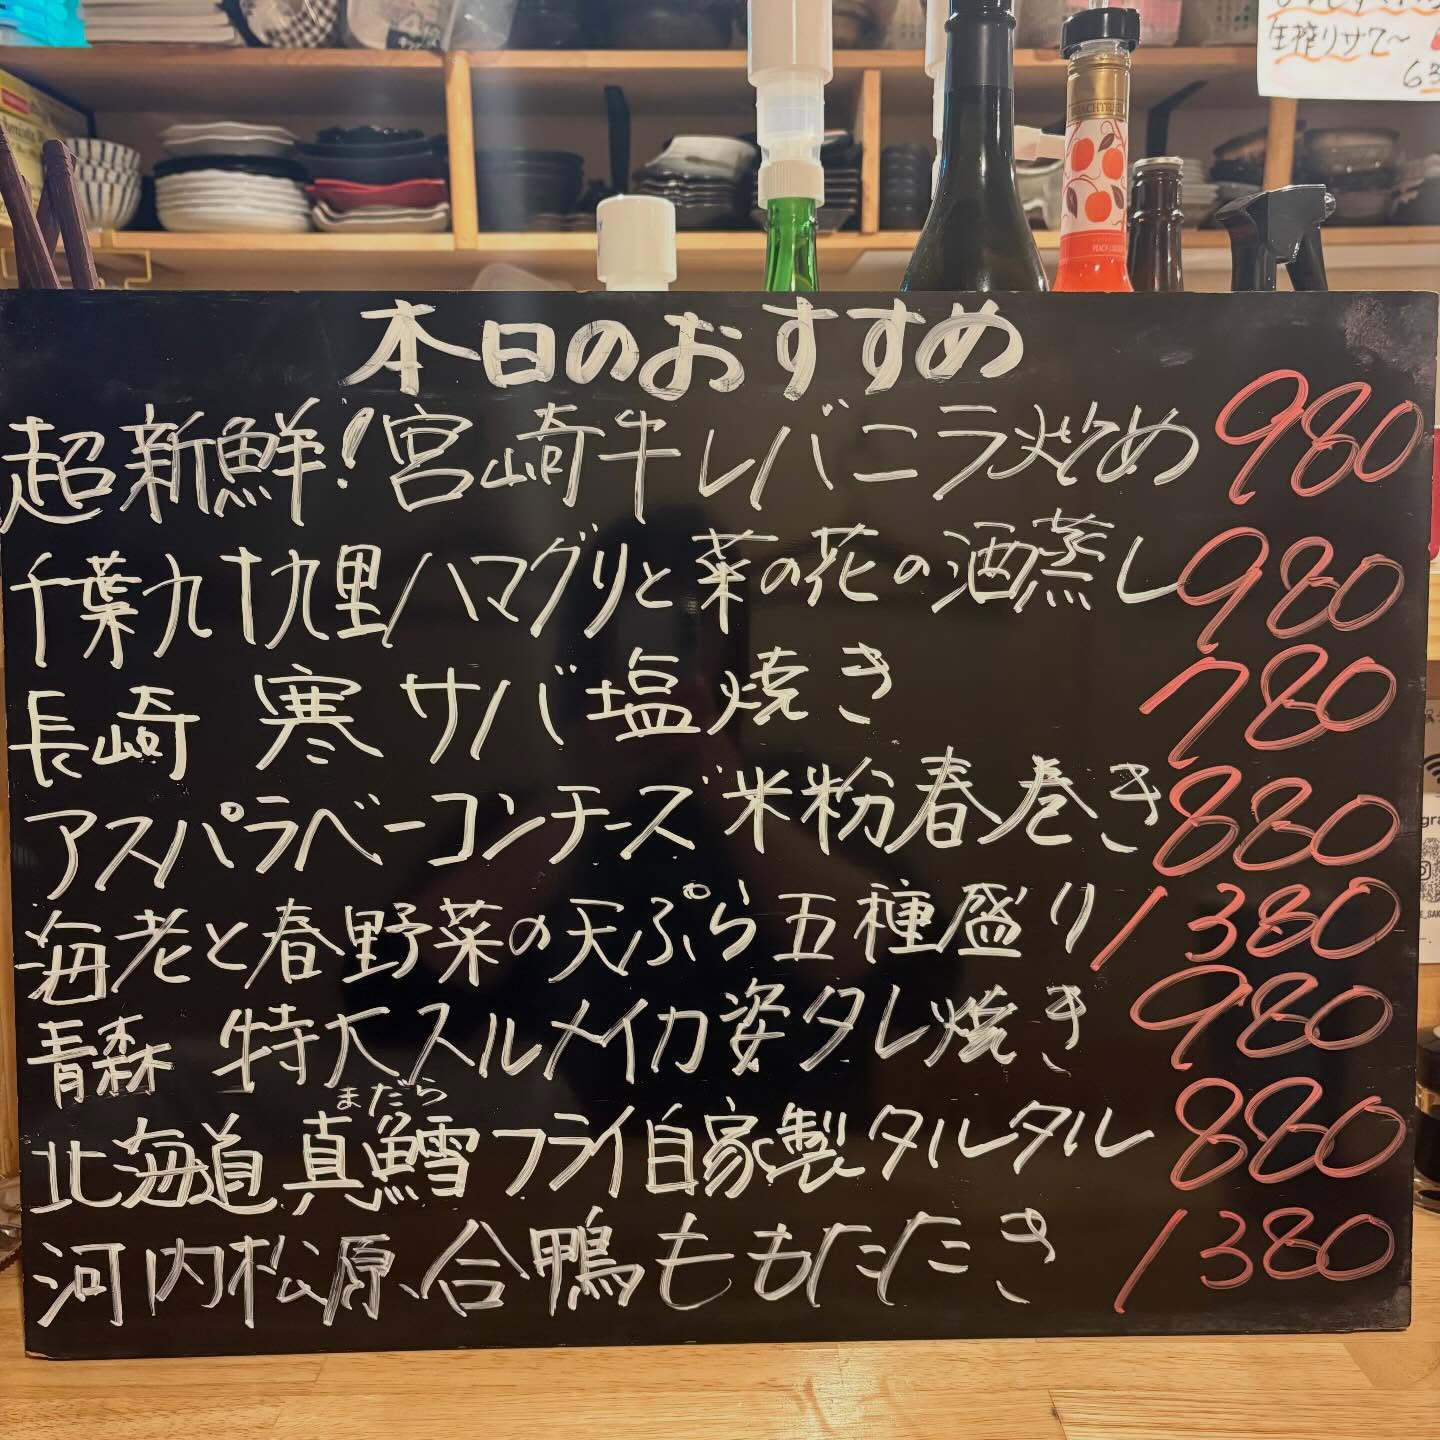 生搾りサワー
本日のおすすめ
超新鮮!宮崎牛レバニラ炒め 980
千葉九十九里ハマグリと菜の花の酒蒸し 980
長崎 寒サバ塩焼き 780
アスパラベーコンチーズ米粉春巻き 880
海老と春野菜の天ぷら五種盛り 1380
青森 特大スルメイカ姿タレ焼き 980
まだら
北海道 真鱈フライ自家製タルタル 880
河内松原、合鴨ももたたき 1380